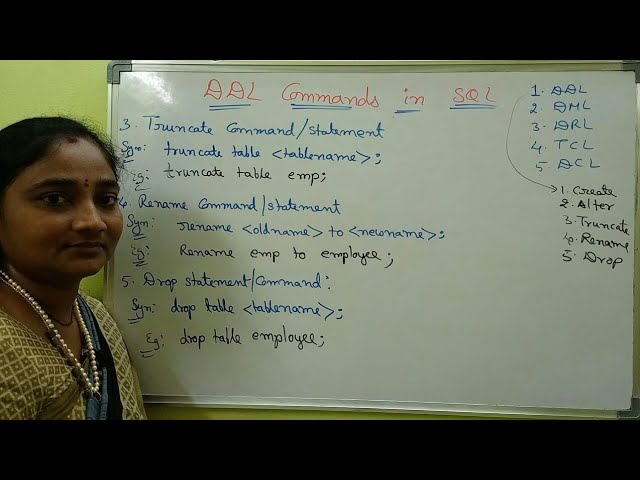 DDL Commands in SQL
3. Truncate Command/statement
Syn: truncate table <tablename>;
Eg: truncate table emp;
4. Rename Command/statement
Syn: rename <oldname> to <newname>;
Eg: Rename emp to employee;
5. Drop statement/Command:
Syn: drop table <tablename>;
Eg: drop table employee;
1. DDL
2. DML
3. DRL
4. TCL
5. DCL
1. Create
2. Alter
3. Truncate
4. Rename
5. Drop